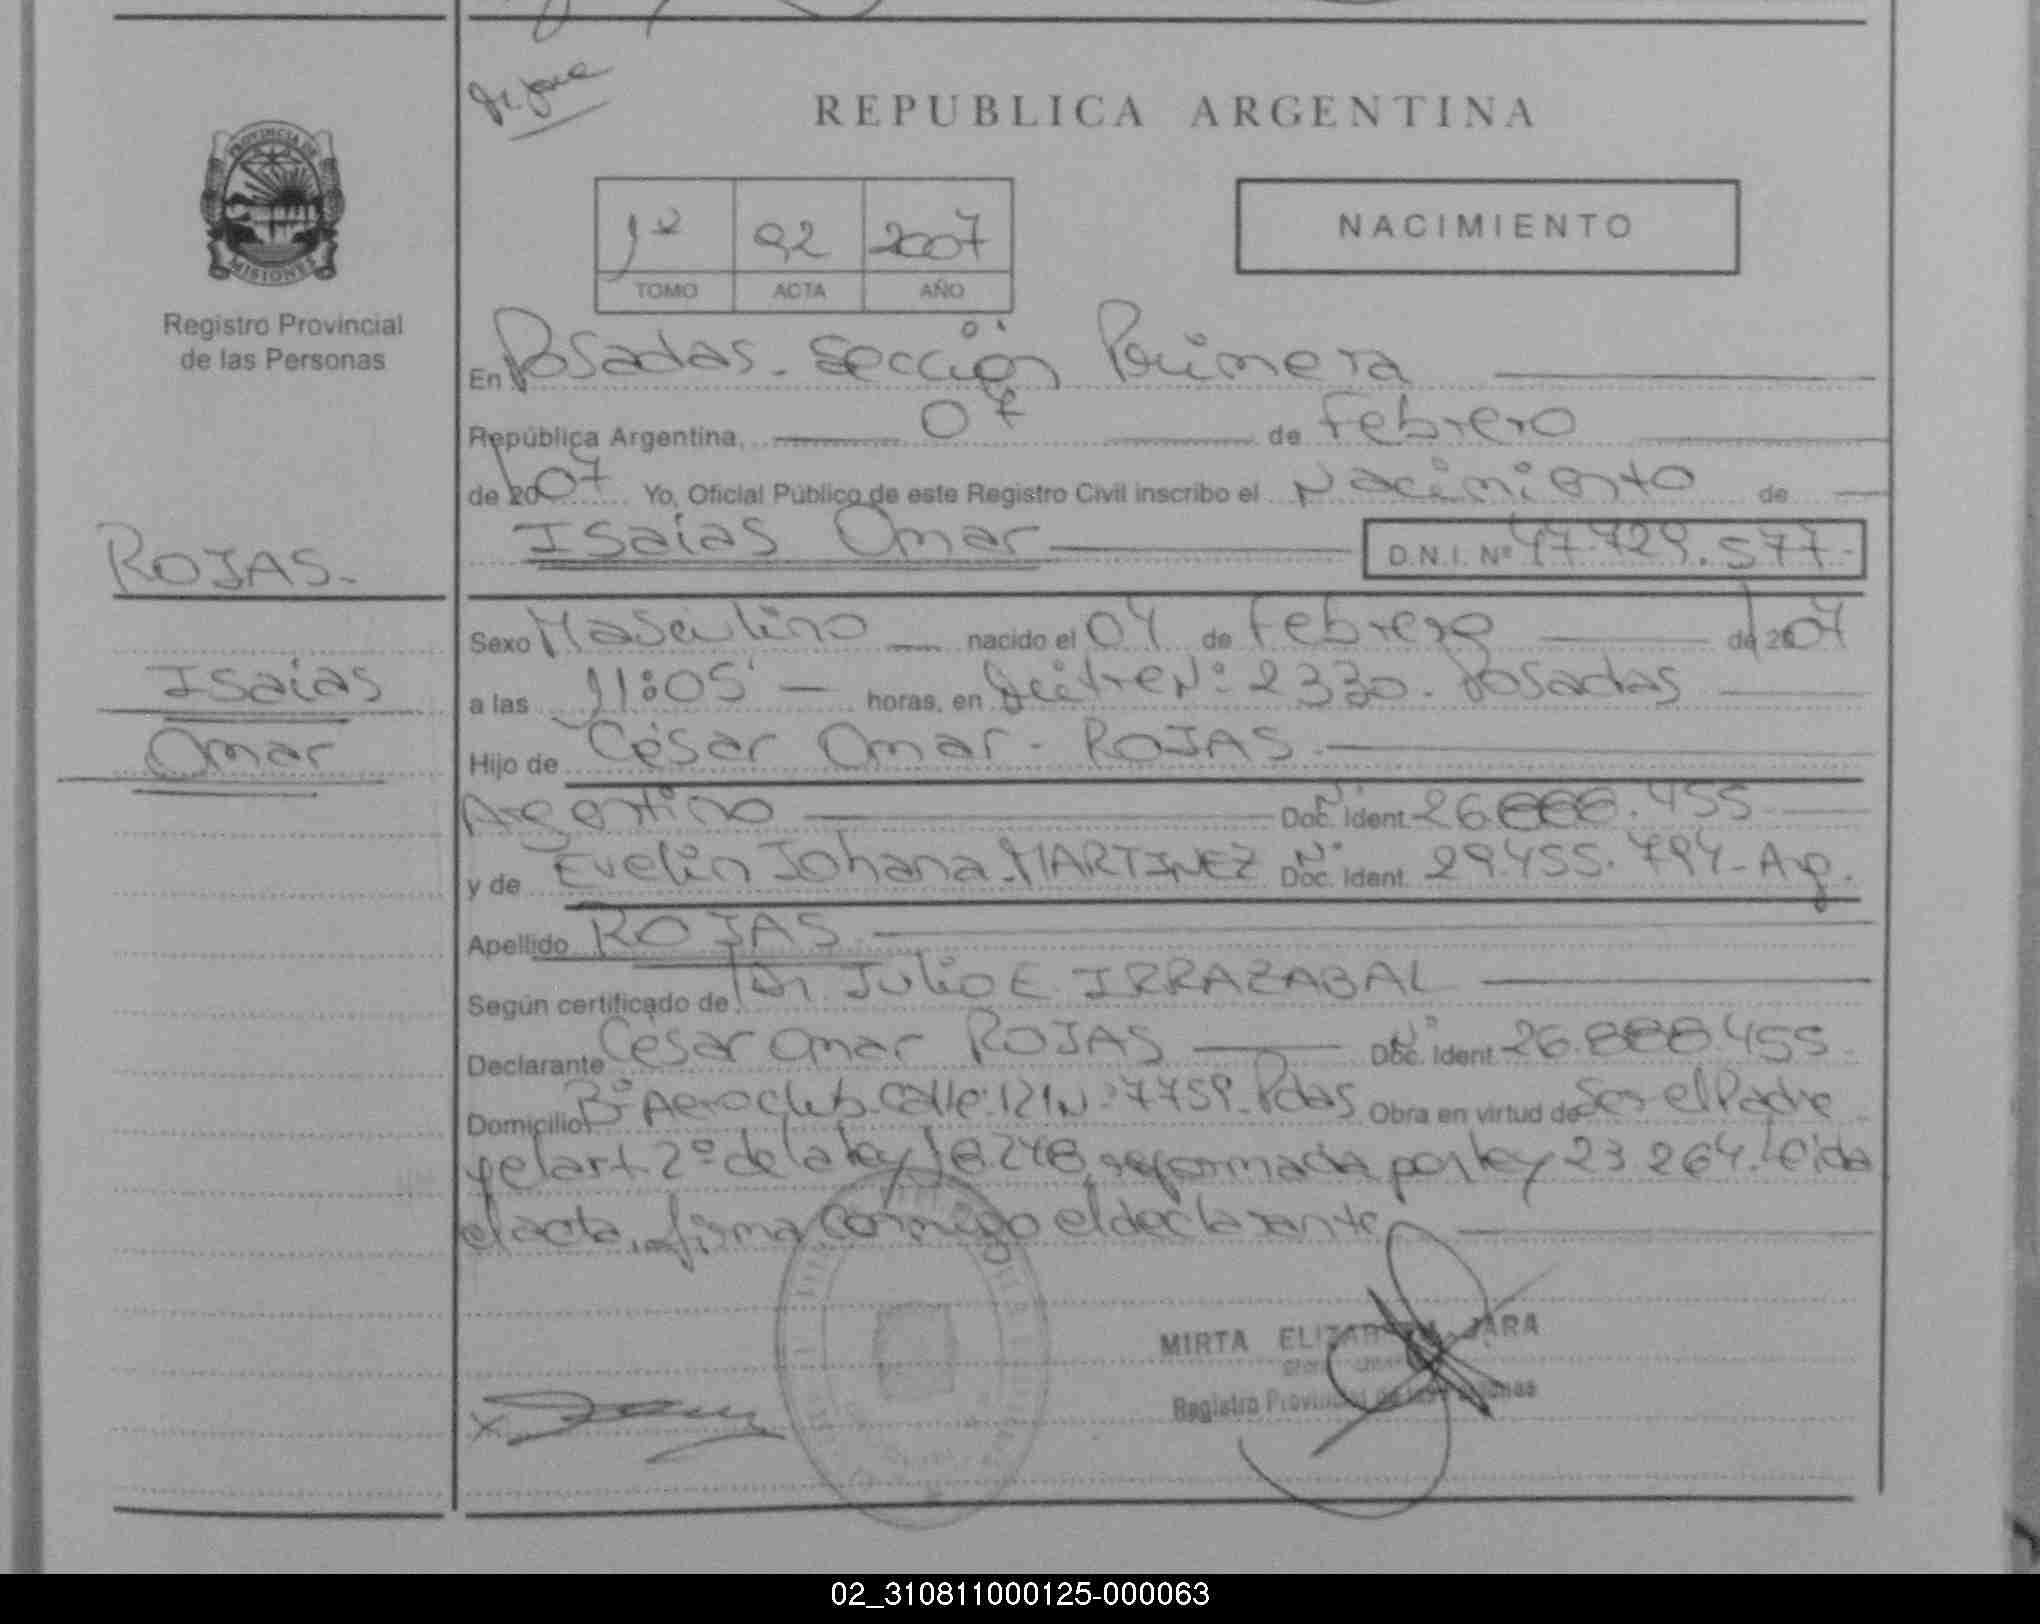 REPUBLICA ARGENTINA
PROVINCIA DE
MISIONES
Registro Provincial
de las Personas
1º 92 2007
TOMO ACTA AÑO
NACIMIENTO
En Posadas. Sección Primera
República Argentina, 07 de Febrero
de 2007 Yo, Oficial Público de este Registro Civil inscribo el Nacimiento de
Isaias Omar D.N.I. Nº 47.729.577.-
ROJAS.-
Isaias
Omar
Sexo Masculino nacido el 04 de Febrero de 2007
a las 11:05' horas, en Nº 2330. Posadas
Hijo de César Omar - ROJAS.
Argentino Nº Doc. Ident. 26.888.455
y de Evelin Johana MARTINEZ Nº Doc. Ident. 29.455.794 - Arg.
Apellido ROJAS
Según certificado de Dr. Julio E. IRRAZABAL
Declarante César Omar ROJAS Nº Doc. Ident. 26.888.455.
Domicilio Bº Aeroclub. Calle 121 Nº 7759. Pdas. Obra en virtud de Ser el Padre
y el art. 2º de la ley 18.248, reformada por ley 23.264. Leida
el acta, firma conmigo el declarante
MIRTA ELIZABETH JARA
Registro Provincial de las Personas
02_310811000125-000063